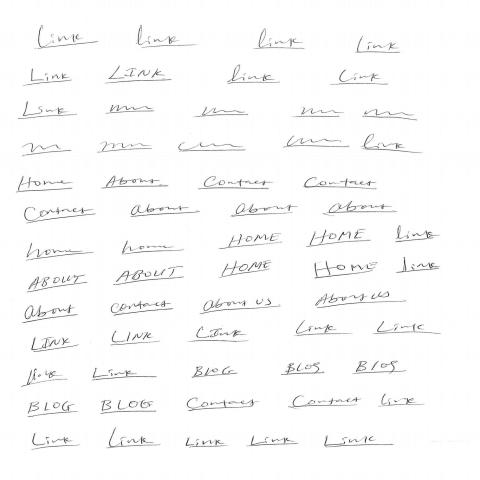 Link link link Link
Link LINK link Link
Link
link
Home About Contact Contact
Contact about about about
home home HOME HOME link
ABOUT ABOUT HOME HOME link
About contact About us About us
LINK LINK LINK Link Link
link Link BLOG BLOG BLOG
BLOG BLOG Contact Contact link
Link Link Link Link Link